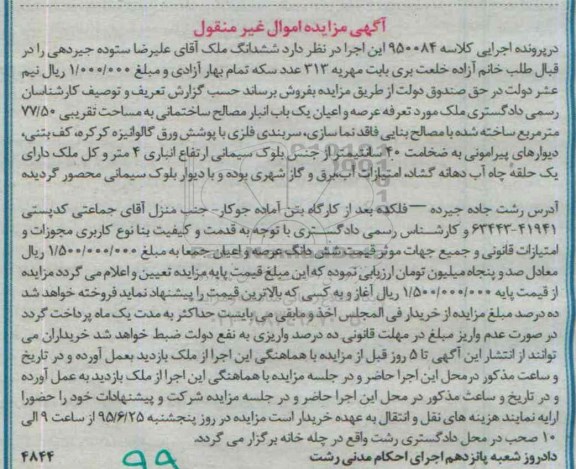 آگهی مزایده اموال غیر منقول
درپرونده اجرایی کلاسه ۹۵۰۰۸۴ این اجرا در نظر دارد ششدانگ ملک آقای علیرضا ستوده جیردهی را در
قبال طلب خانم آزاده خلعت بری بابت مهریه ۳۱۳ عدد سکه تمام بهار آزادی و مبلغ ۱/۰۰۰/۰۰۰ ریال نیم
عشر دولت در حق صندوق دولت از طریق مزایده بفروش برساند حسب گزارش تعریف و توصیف کارشناسان
رسمی دادگستری ملک مورد تعرفه عرصه و اعیان یک باب انبار مصالح ساختمانی به مساحت تقریبی ۷۷/۵۰
مترمربع ساخته شده با مصالح بنایی فاقد نما سازی، سربندی فلزی با پوشش ورق گالوانیزه کرکره، کف بتنی،
دیوارهای پیرامونی به ضخامت ۴۰ سانتیمتر از جنس بلوک سیمانی ارتفاع انباری ۴ متر و کل ملک دارای
یک حلقه چاه آب دهانه گشاد، امتیازات آب، برق و گاز شهری بوده و با دیوار بلوک سیمانی محصور گردیده
آدرس رشت جاده جیرده – فلکده بعد از کارگاه بتن آماده جوکار- جنب منزل آقای جماعتی کدپستی
۴۱۹۴۱-۶۳۴۴۳ و کارشناس رسمی دادگستری با توجه به قدمت و کیفیت بنا نوع کاربری مجوزات و
امتیازات قانونی و جمیع جهات موثر قیمت شش دانگ عرصه و اعیان جمعا به مبلغ ۱/۵۰۰/۰۰۰/۰۰۰ ریال
معادل صد و پنجاه میلیون تومان ارزیابی نموده که این مبلغ قیمت پایه مزایده تعیین و اعلام می گردد مزایده
از قیمت پایه ۱/۵۰۰/۰۰۰/۰۰۰ ریال آغاز و به کسی که بالاترین قیمت را پیشنهاد نماید فروخته خواهد شد
ده درصد مبلغ مزایده از خریدار فی المجلس اخذ و مابقی می بایست حداکثر به مدت یک ماه پرداخت گردد
در صورت عدم واریز مبلغ در مهلت قانونی ده درصد واریزی به نفع دولت ضبط خواهد شد خریداران می
توانند از انتشار این آگهی تا ۵ روز قبل از مزایده با هماهنگی این اجرا از ملک بازدید بعمل آورده و در تاریخ
و ساعت مذکور درمحل این اجرا حاضر و در جلسه مزایده با هماهنگی این اجرا از ملک بازدید به عمل آورده
و در تاریخ و ساعت مذکور در محل این اجرا حاضر و در جلسه مزایده شرکت و پیشنهادات خود را حضورا
ارایه نمایند هزینه های نقل و انتقال به عهده خریدار است مزایده در روز پنجشنبه ۹۵/۶/۲۵ از ساعت ۹ الی
۱۰ صحب در محل دادگستری رشت واقع در چله خانه برگزار می گردد.
دادورز شعبه پانزدهم اجرای احکام مدنی رشت ۴۸۴۴
۹۹